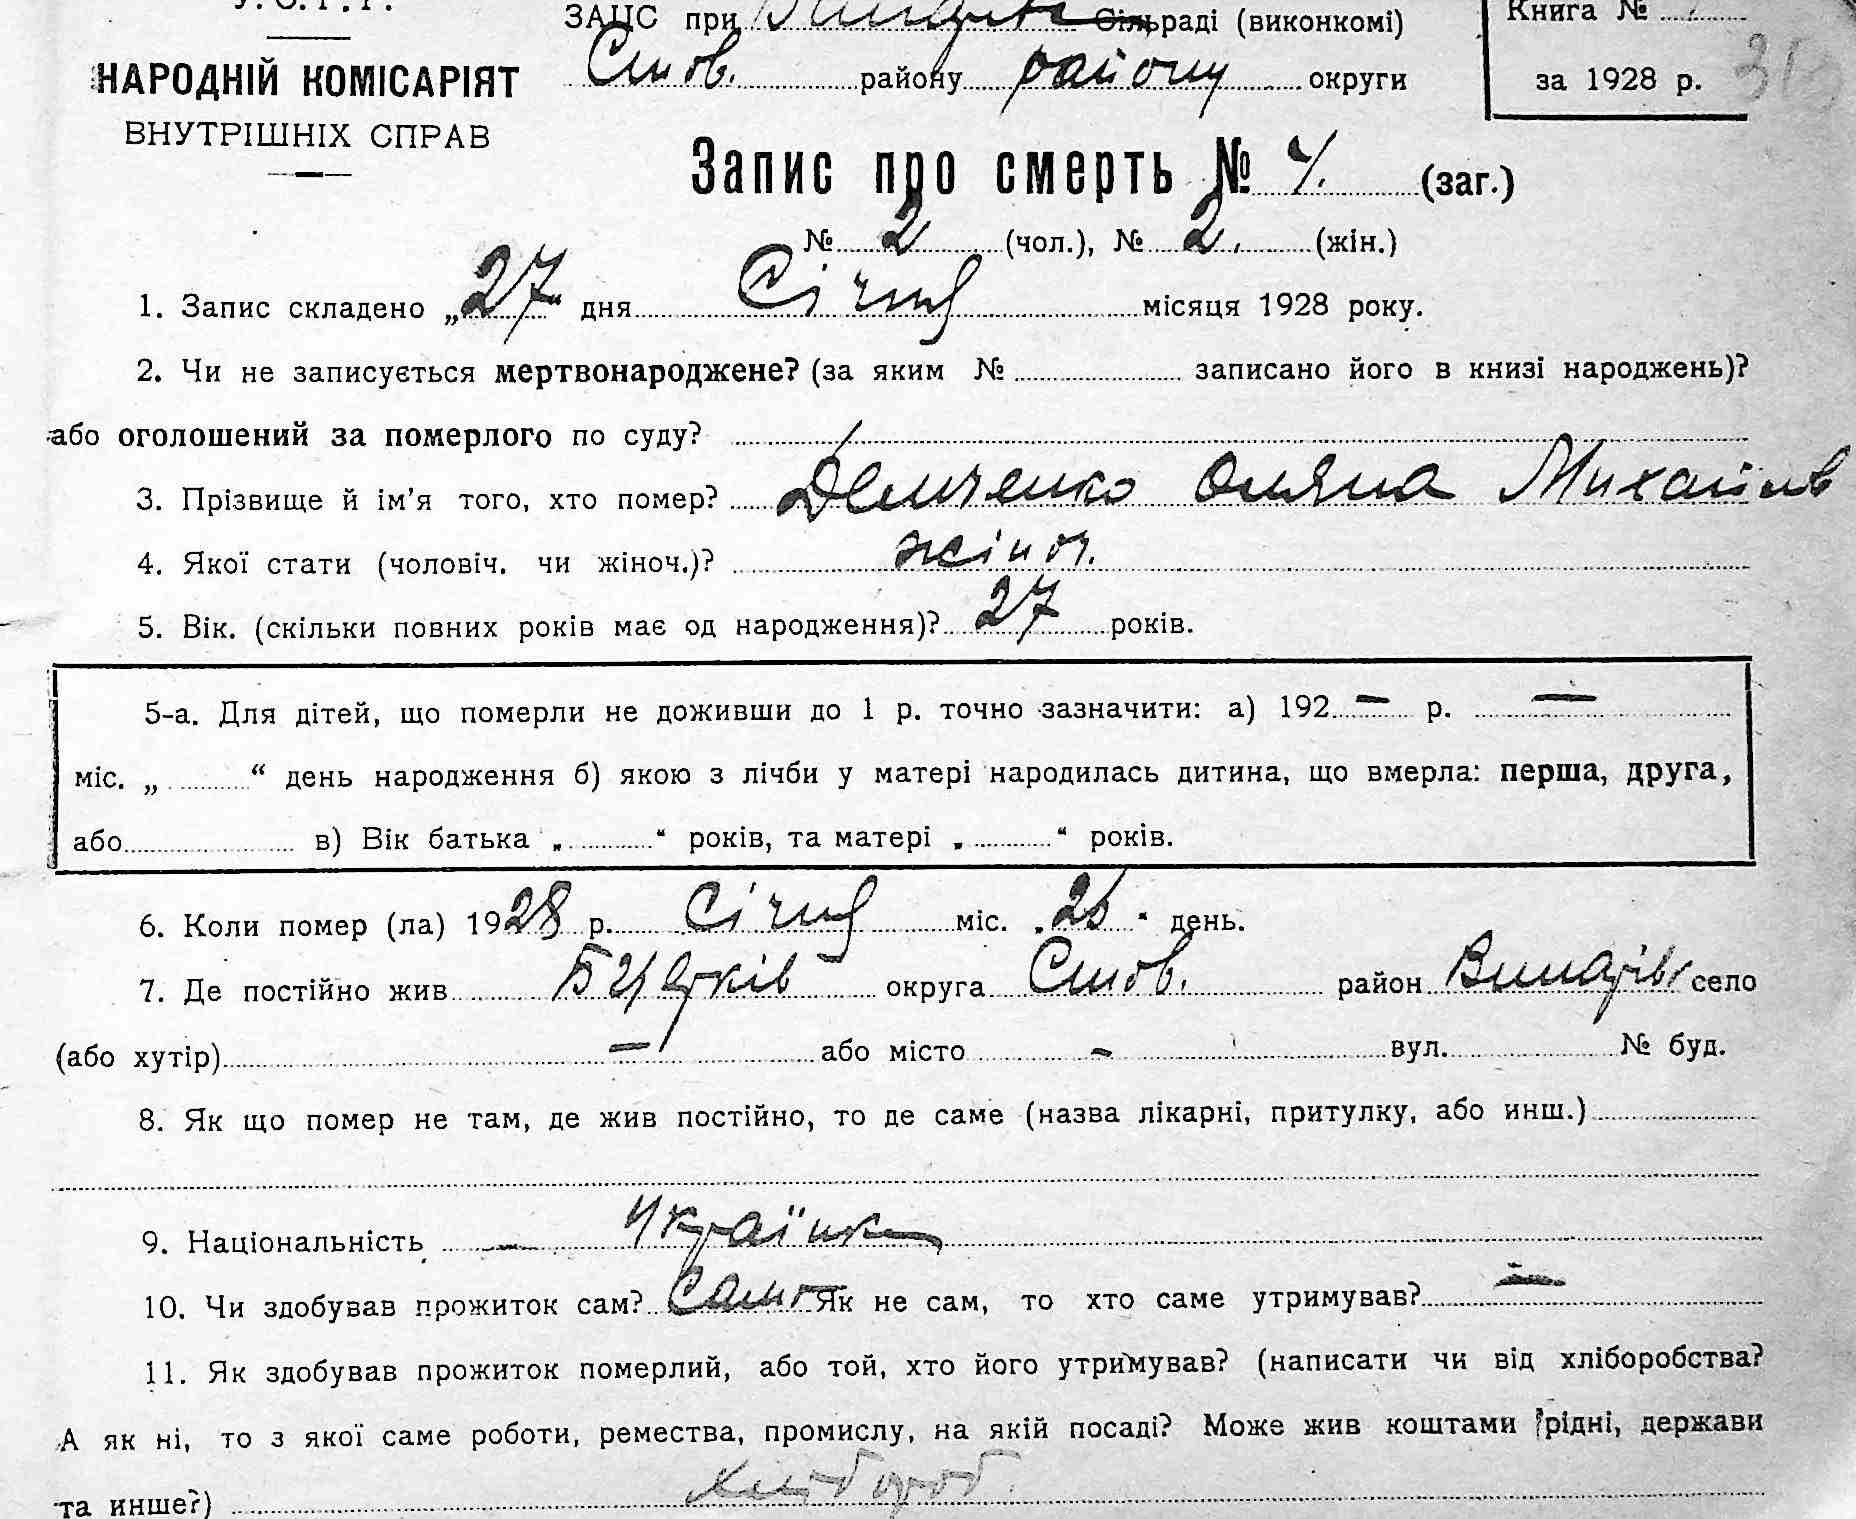 У.С.Р.Р.
НАРОДНІЙ КОМІСАРІЯТ
ВНУТРІШНІХ СПРАВ
ЗАЦС при сільраді (виконкомі)
Став. району району округи
Книга №
за 1928 р.
Запис про смерть № 4. (заг.)
№ 2 (чол.), № 2. (жін.)
1. Запис складено „27“ дня Січня місяця 1928 року.
2. Чи не записується мертвонароджене? (за яким № записано його в книзі народжень)?
або оголошений за померлого по суду?
3. Прізвище й ім'я того, хто помер? Демченко Оляна Михайлов
4. Якої стати (чоловіч. чи жіноч.)? жіноч.
5. Вік. (скільки повних років має од народження)? 27 років.
5-а. Для дітей, що померли не доживши до 1 р. точно зазначити: а) 192 — р. —
міс. „ “ день народження б) якою з лічби у матері народилась дитина, що вмерла: перша, друга,
або в) Вік батька „ “ років, та матері „ “ років.
6. Коли помер (ла) 1928 р. Січня міс. „ “ день.
7. Де постійно жив округа Став. район село
(або хутір) — або місто - вул. № буд.
8. Як що помер не там, де жив постійно, то де саме (назва лікарні, притулку, або инш.)
9. Національність — Українка
10. Чи здобував прожиток сам? Само Як не сам, то хто саме утримував? —
11. Як здобував прожиток померлий, або той, хто його утримував? (написати чи від хліборобства?
А як ні, то з якої саме роботи, ремества, промислу, на якій посаді? Може жив коштами рідні, держави
та инше?) хлібороб.